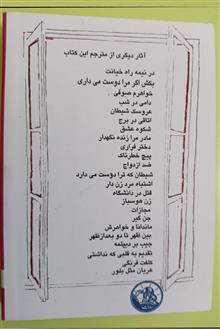 آثار دیگری از مترجم این کتاب
در نیمه راه خیانت
بکش اگر مرا دوست می داری
خواهرم صوفی
دامی در شب
عروسک شیطان
اتاقی در برج
شکوه عشق
مادر مرا زنده نگهدار
دختر فراری
پیچ خطرناک
ضد ازدواج
شیطان که ترا دوست می دارد
اشتباه مرد زن دار
قتل در دانشگاه
زن هوسباز
مجازات
جن گیر
ماندانا و خواهرش
بین ظهر تا دو بعدازظهر
جیب بر دیپلمه
تقدیم به قلبی که نداشتی
کلفت فرنگی
عریان مثل بلور